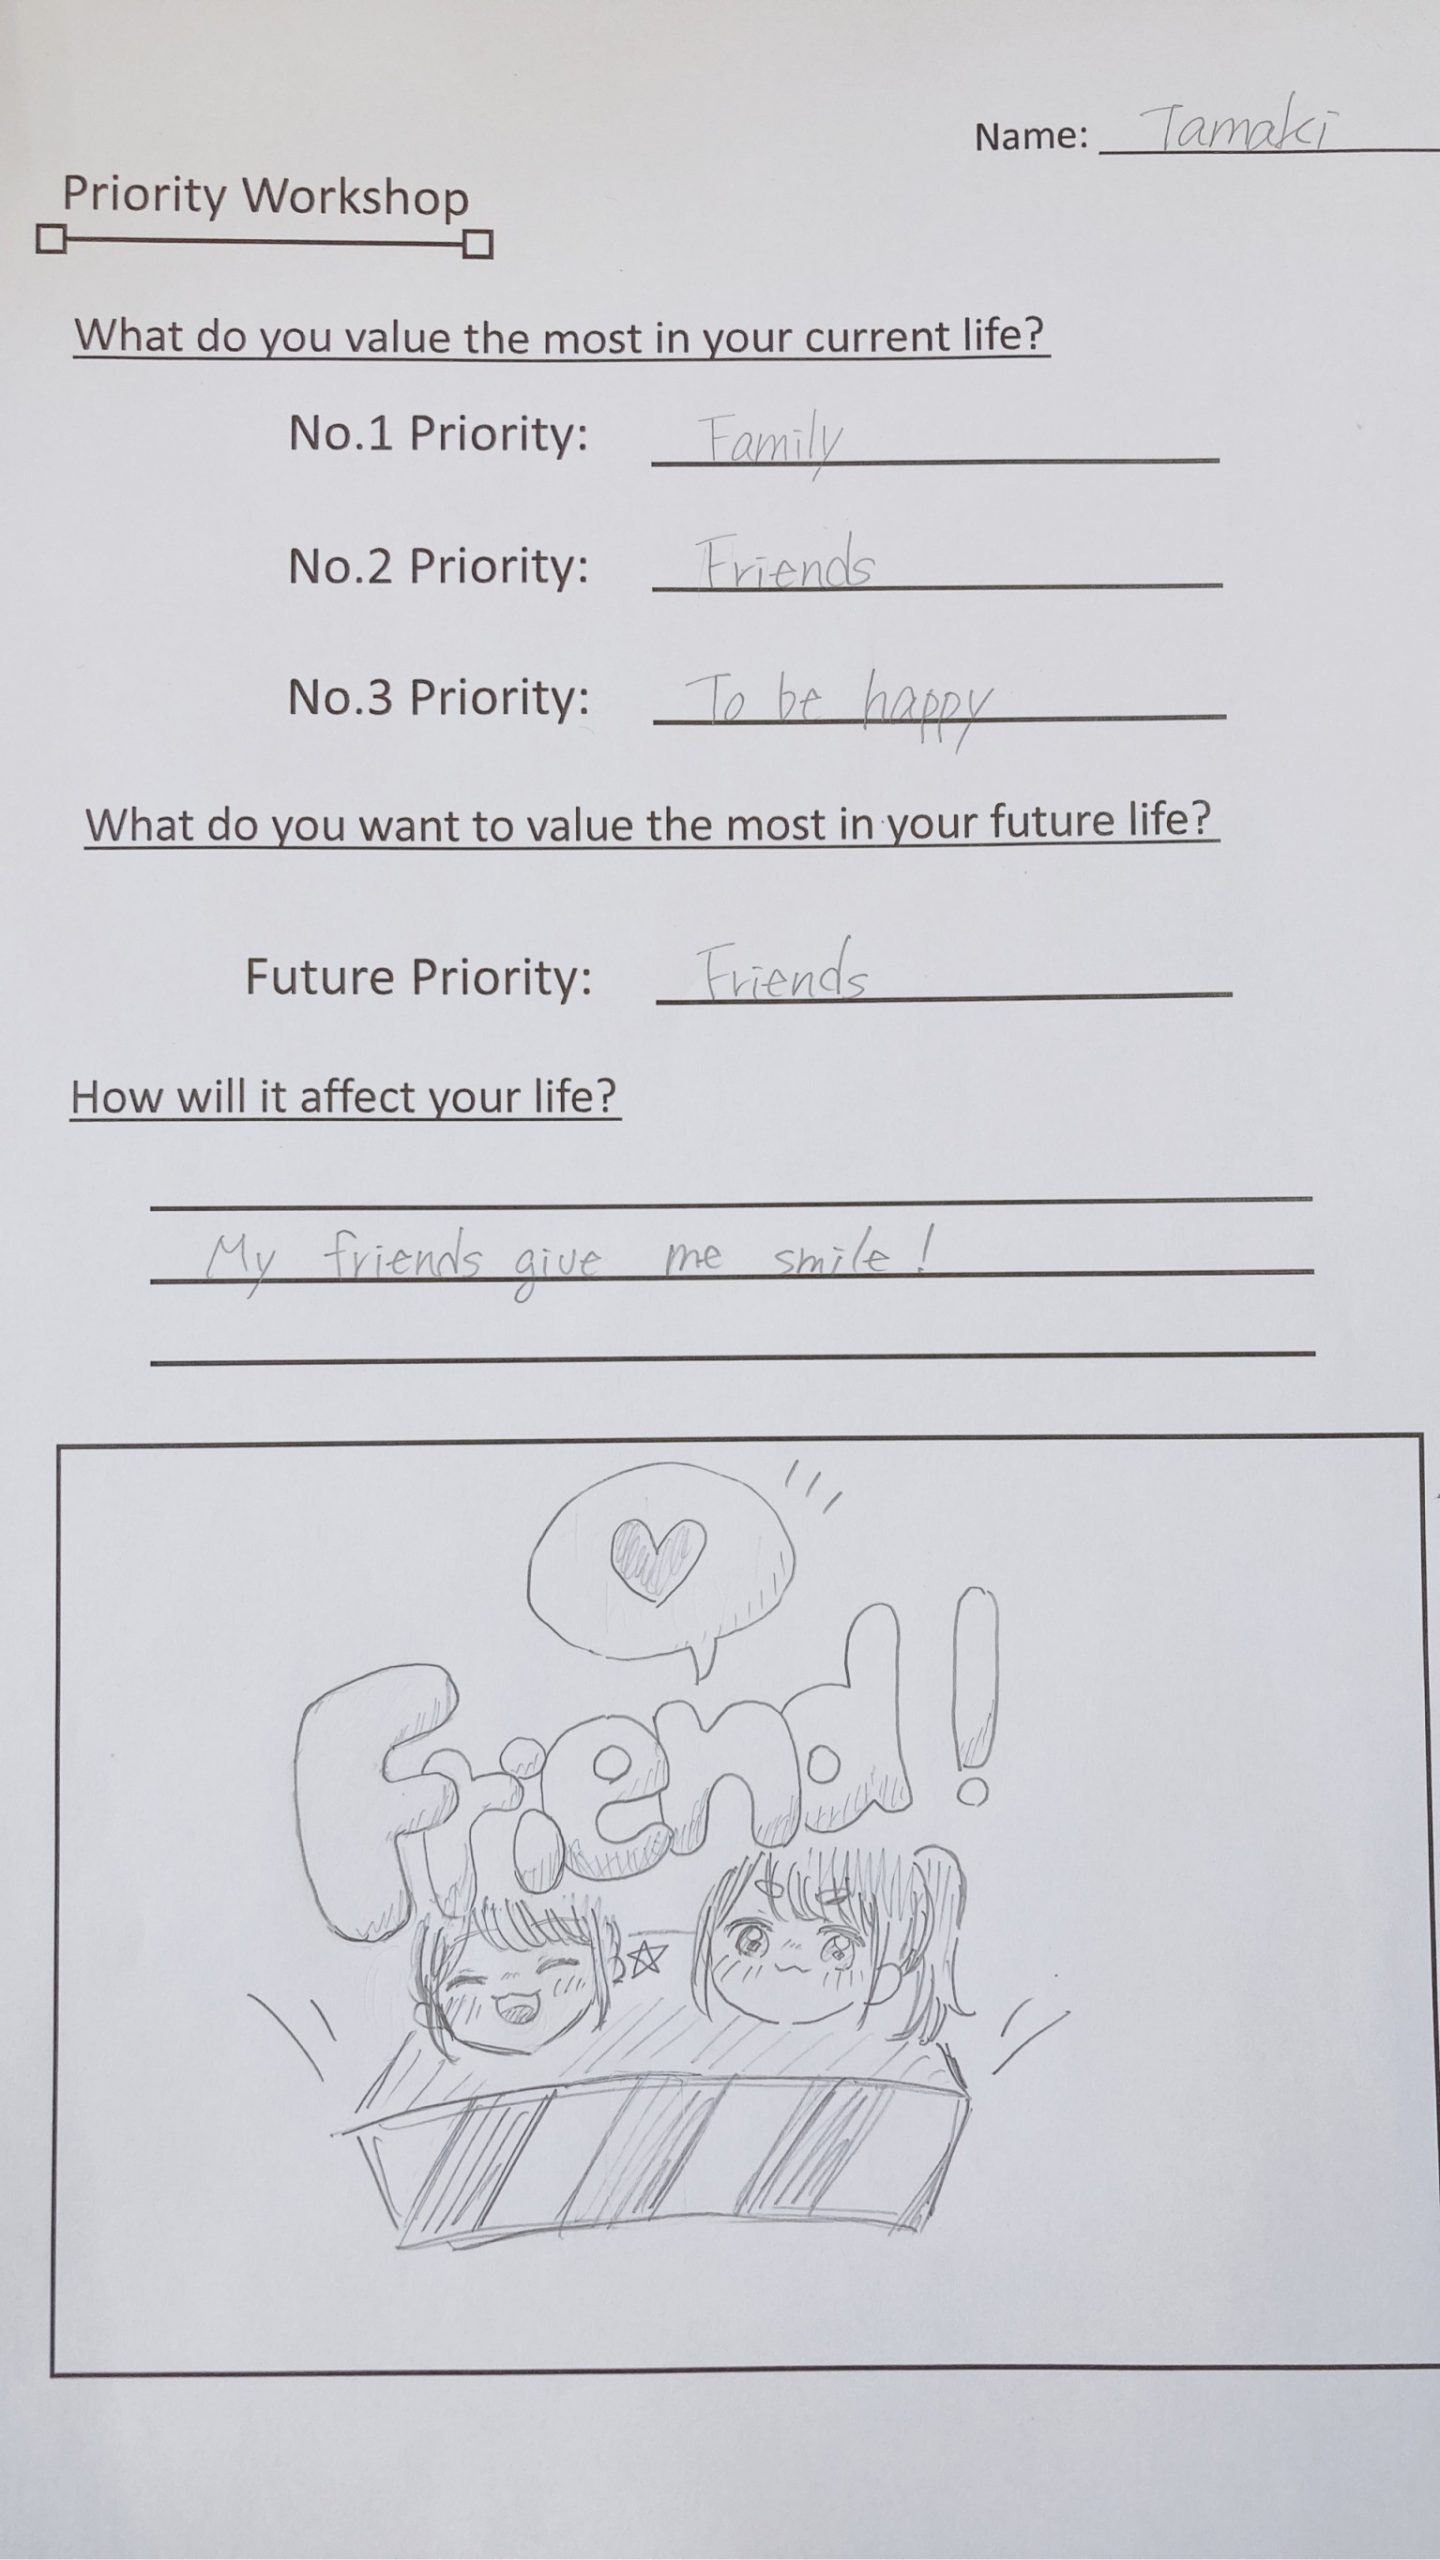 Name: Tamaki
Priority Workshop
What do you value the most in your current life?
No.1 Priority: Family
No.2 Priority: Friends
No.3 Priority: To be happy
What do you want to value the most in your future life?
Future Priority: Friends
How will it affect your life?
My friends give me smile!
Friend!